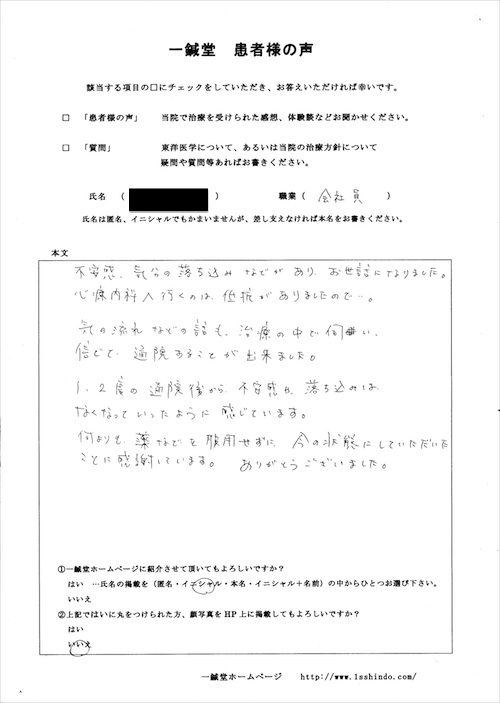 一鍼堂 患者様の声
該当する項目の□にチェックをしていただき、お答えいただければ幸いです。
□ 「患者様の声」 当院で治療を受けられた感想、体験談などお聞かせください。
□ 「質問」 東洋医学について、あるいは当院の治療方針について
疑問や質問等あればお書きください。
氏名 ( ) 職業 ( 会社員 )
氏名は匿名、イニシャルでもかまいませんが、差し支えなければ本名をお書きください。
本文
不安感、気分の落ち込みなどがあり、お世話になりました。
心療内科へ行くのは、抵抗がありましたので…。
気の流れなどの話も、治療の中で伺い、
信じて通院することが出来ました。
1、2度の通院後から、不安感も、落ち込みは
なくなっていったように感じています。
何よりも、薬などを服用せずに、今の状態にしていただいた
ことに感謝しています。 ありがとうございました。
①一鍼堂ホームページに紹介させて頂いてもよろしいですか?
はい …氏名の掲載を(匿名・イニシャル・本名・イニシャル+名前)の中からひとつお選び下さい。
いいえ
②上記ではいに丸をつけられた方、顔写真をHP上に掲載してもよろしいですか?
はい
いいえ
一鍼堂ホームページ http://www.1sshindo.com/